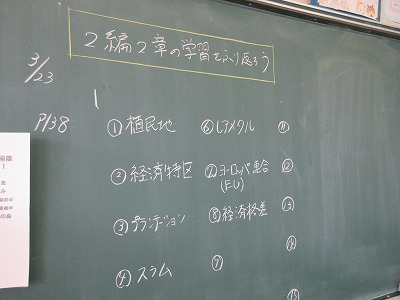 2編2章の学習をふり返ろう
3/23
P138
1
①植民地
②経済特区
③プランテーション
④スラム
⑥レアメタル
⑦ヨーロッパ連合
(EU)
⑧経済格差
⑨
⑪
⑫
⑬
⑭
⑮